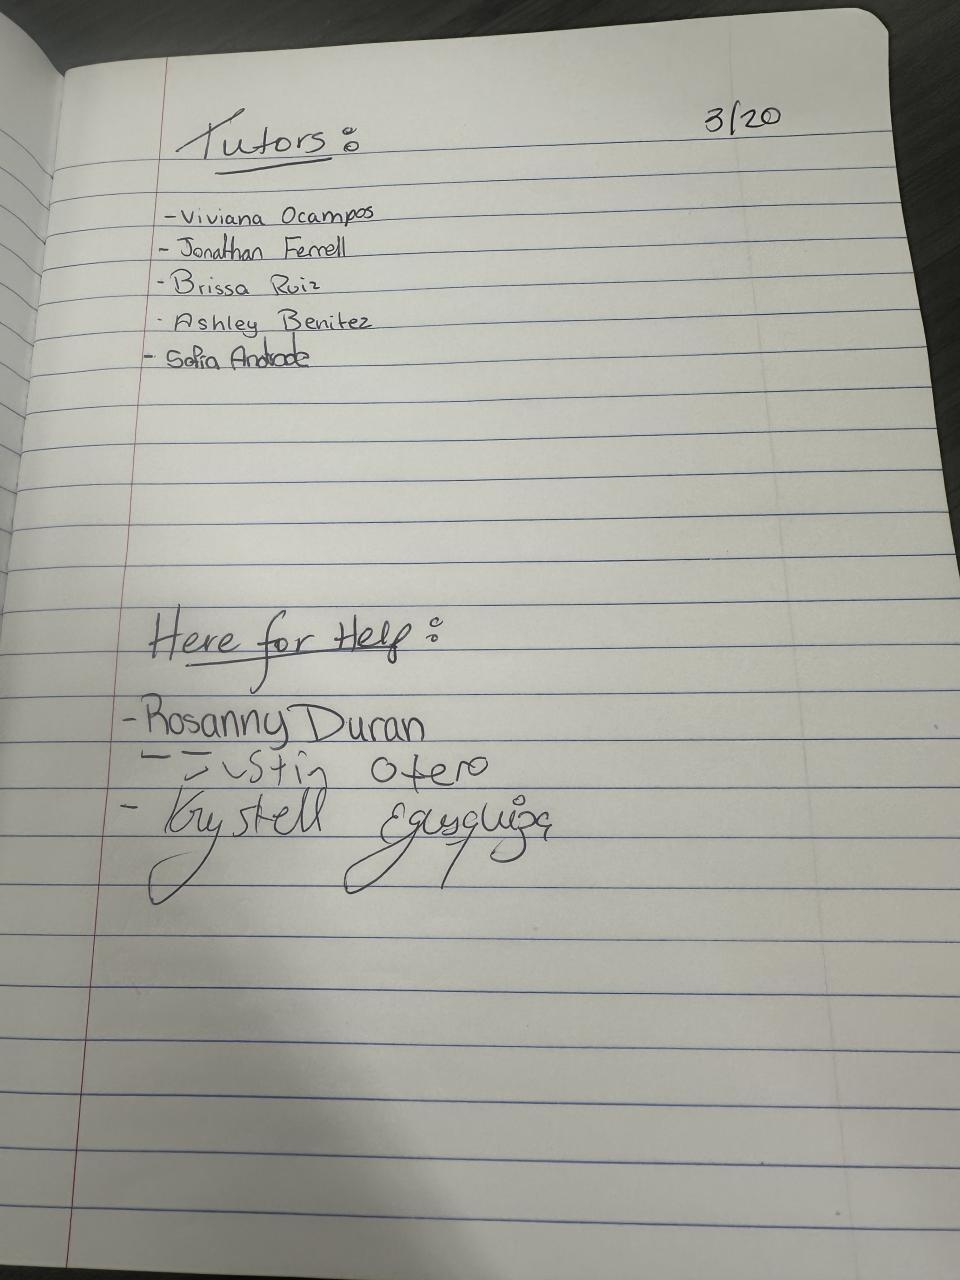 Tutors: 3/20
- Viviana Ocampos
- Jonathan Ferrell
- Brissa Ruiz
- Ashley Benitez
- Sofia Andrade
Here for Help:
- Rosanny Duran
- Justin Otero
- Krystell Egusquiza